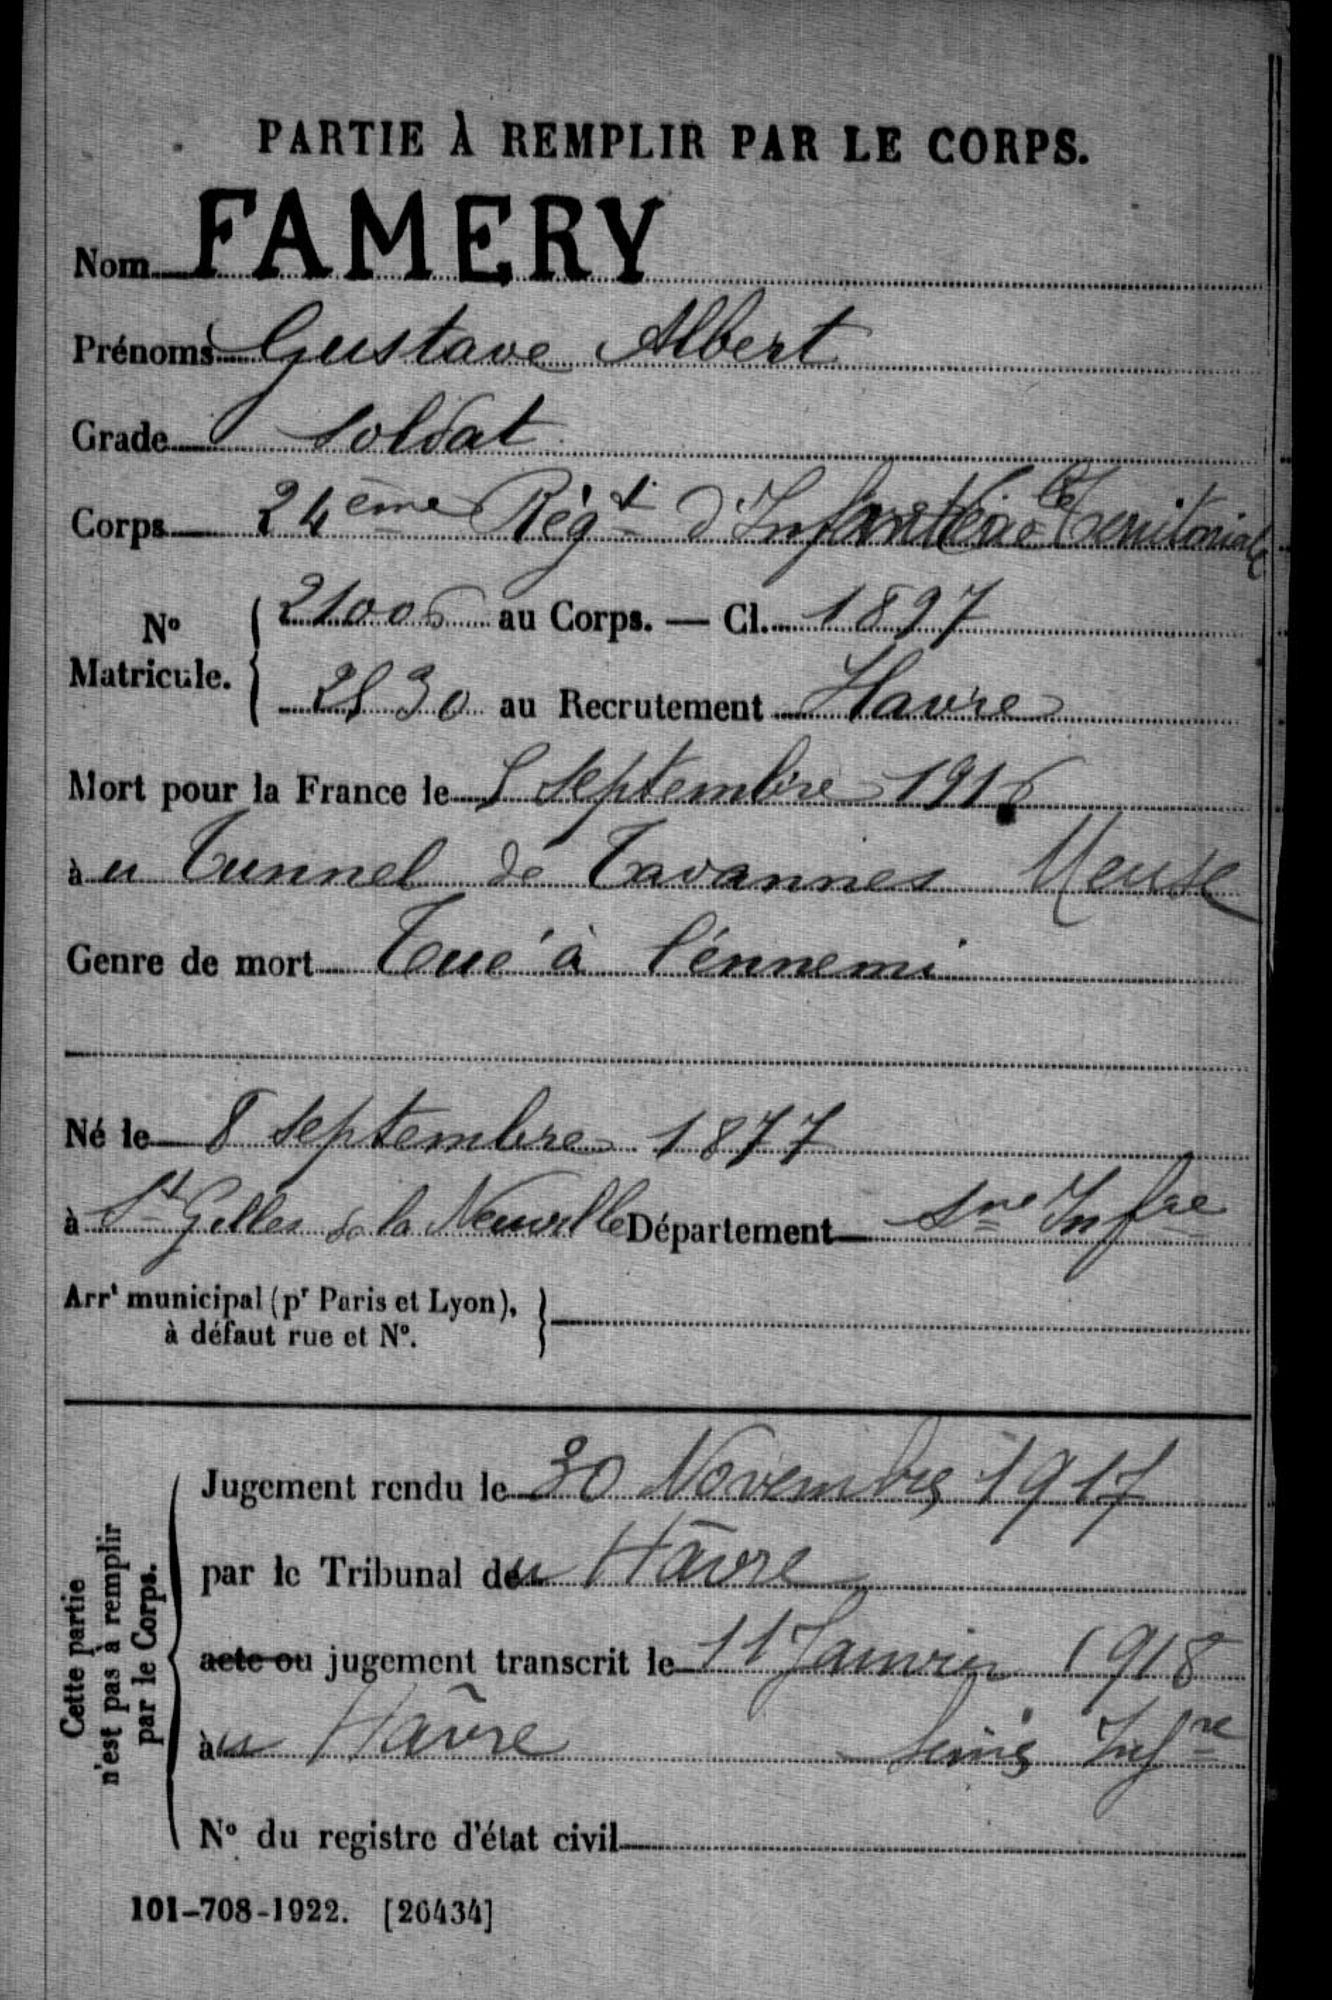 PARTIE À REMPLIR PAR LE CORPS.
Nom FAMERY
Prénoms Gustave Albert
Grade Soldat
Corps 24ème Régt d'Infanterie Territoriale
No Matricule. { 21006 au Corps. — Cl. 1897
2830 au Recrutement Havre
Mort pour la France le 5 Septembre 1916
àu Tunnel de Tavannes Meuse
Genre de mort Tué à l'énnemi
Né le 8 septembre 1877
à St Gilles de la Neuville Département Sne Infre
Arrt municipal (pr Paris et Lyon), à défaut rue et No. }
Cette partie n'est pas à remplir par le Corps.
Jugement rendu le 30 Novembre 1917
par le Tribunal du Hâvre
acte ou jugement transcrit le 11 Janvier 1918
àu Hâvre Seine Infre
No du registre d'état civil
101-708-1922. [26434]